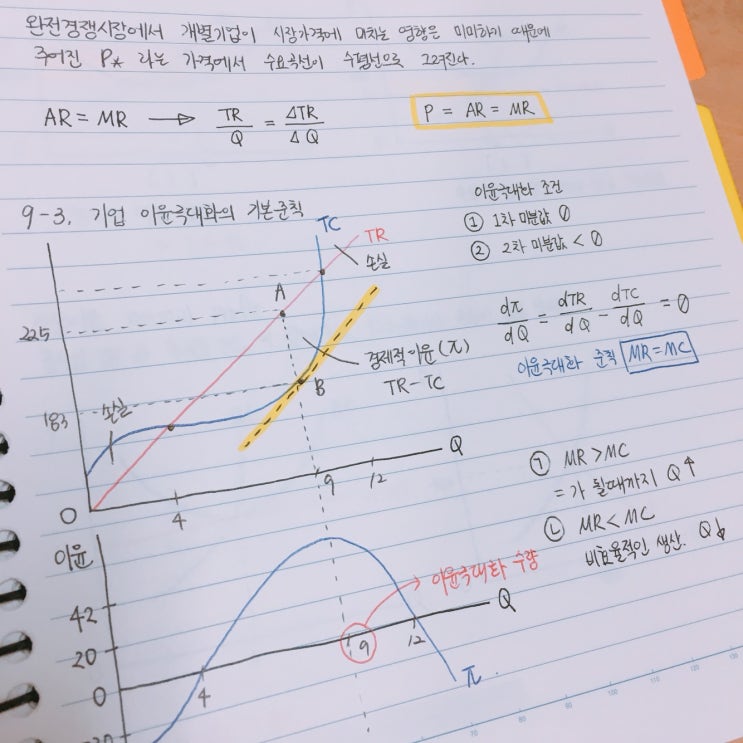 완전경쟁시장에서 개별기업이 시장가격에 미치는 영향은 미미하기 때문에
주어진 P* 라는 가격에서 수요곡선이 수평선으로 그려진다.
AR = MR → TR/Q = ΔTR/ΔQ
P = AR = MR
9-3. 기업 이윤극대화의 기본준칙
이윤극대화 조건
① 1차 미분값 0
② 2차 미분값 < 0
TC
TR
손실
A
225
경제적이윤(π)
TR-TC
B
183
손실
dπ/dQ = dTR/dQ - dTC/dQ = 0
이윤극대화 준칙 MR=MC
Q
0
4
9
12
㉠ MR > MC
= 가 될때까지 Q↑
㉡ MR < MC
비효율적인 생산. Q↓
이윤
이윤극대화 수량
Q
42
20
0
4
9
12
π